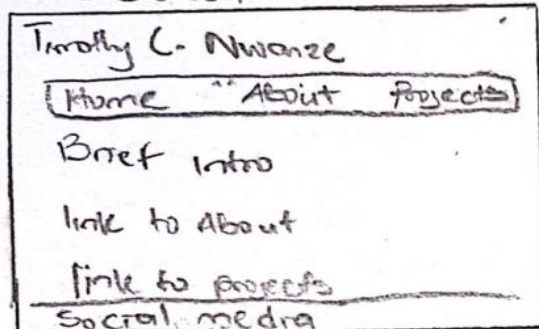 Timothy C. Nwanze
Home About Projects
Brief Intro
link to About
link to projects
Social media